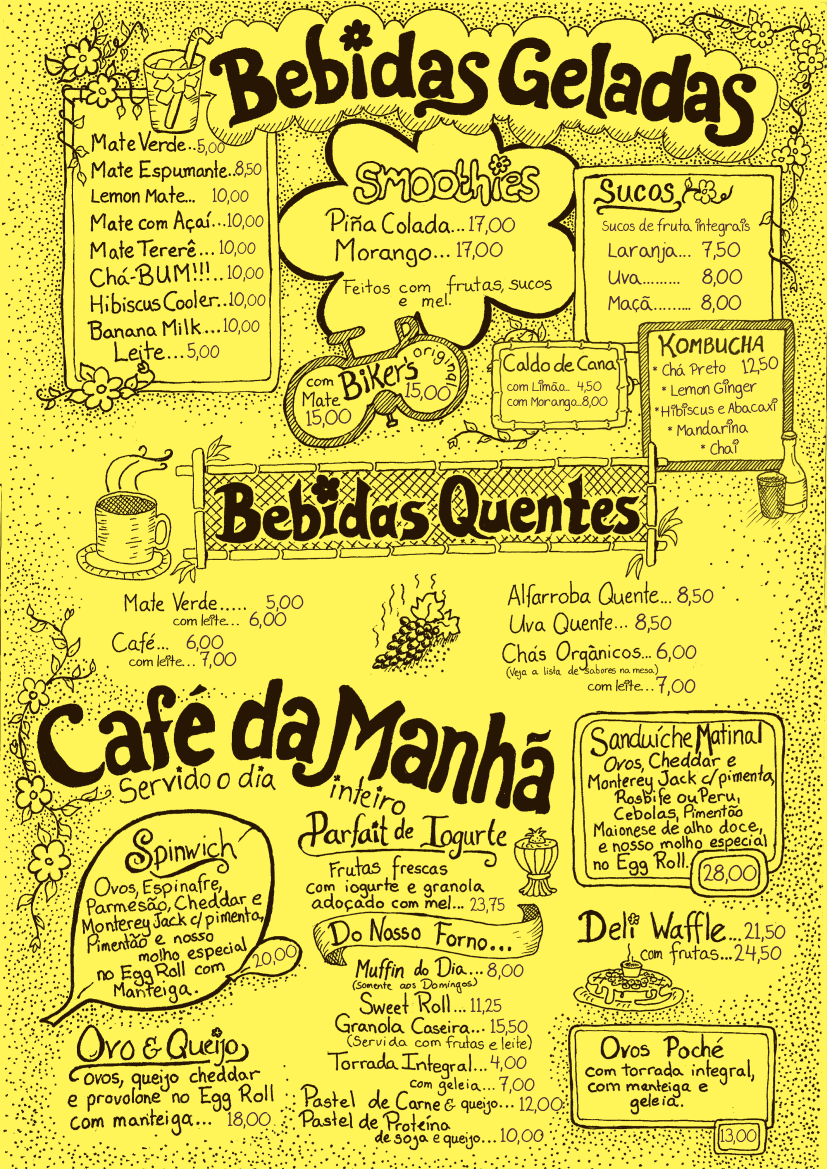 Bebidas Geladas
Mate Verde..5,00
Mate Espumante..8,50
Lemon Mate... 10,00
Mate com Açaí...10,00
Mate Tererê... 10,00
Chá-BUM!!!...10,00
Hibiscus Cooler...10,00
Banana Milk...10,00
Leite...5,00
Smoothies
Piña Colada...17,00
Morango...17,00
Feitos com frutas, sucos
e mel.
Sucos
Sucos de fruta integrais
Laranja... 7,50
Uva......... 8,00
Maçã......... 8,00
Biker's
com
Mate
15,00
original
15,00
Caldo de Cana
com Limão... 4,50
com Morango...8,00
KOMBUCHA
* Chá Preto 12,50
* Lemon Ginger
*Hibiscus e Abacaxi
* Mandarina
* Chai
Bebidas Quentes
Mate Verde..... 5,00
com leite... 6,00
Café... 6,00
com leite... 7,00
Alfarroba Quente... 8,50
Uva Quente... 8,50
Chás Orgànicos... 6,00
(Veja a lista de sabores na mesa)
com leite... 7,00
Café da Manhã
Servido o dia inteiro
Spinwich
Ovos, Espinafre,
Parmesão, Cheddar e
Monterey Jack c/ pimenta,
Pimentão e nosso
molho especial
no Egg Roll com
Manteiga.
20,00
Ovo & Queijo
Ovos, queijo cheddar
e provolone no Egg Roll
com manteiga... 18,00
Parfait de Iogurte
Frutas frescas
com iogurte e granola
adoçado com mel... 23,75
Do Nosso Forno...
Muffin do Dia... 8,00
(Somente aos Domingos)
Sweet Roll... 11,25
Granola Caseira... 15,50
(Servida com frutas e leite)
Torrada Integral... 4,00
com geleia... 7,00
Pastel de Carne & queijo... 12,00
Pastel de Proteína
de soja e queijo... 10,00
Sanduíche Matinal
Ovos, Cheddar e
Monterey Jack c/pimenta,
Rosbife ou Peru,
Cebolas, Pimentão
Maionese de alho doce,
e nosso molho especial
no Egg Roll.
28,00
Deli Waffle...21,50
com frutas...24,50
Ovos Poché
com torrada integral,
com manteiga e
geleia.
13,00